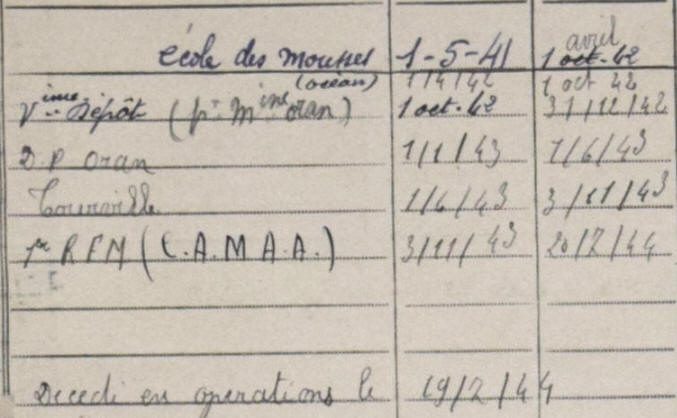 école des mousses 1-5-41 1 avril oct-42
(océan) 1/4/42 1 oct 42
V ième Dépôt (pr Mine oran) 1 oct. 42 31/12/42
D.P Oran 1/1/43 1/6/43
Tourville 1/6/43 3/11/43
1er RFM (C.A.M.A.A.) 3/11/43 20/2/44
Decedi en operations le 19/2/44